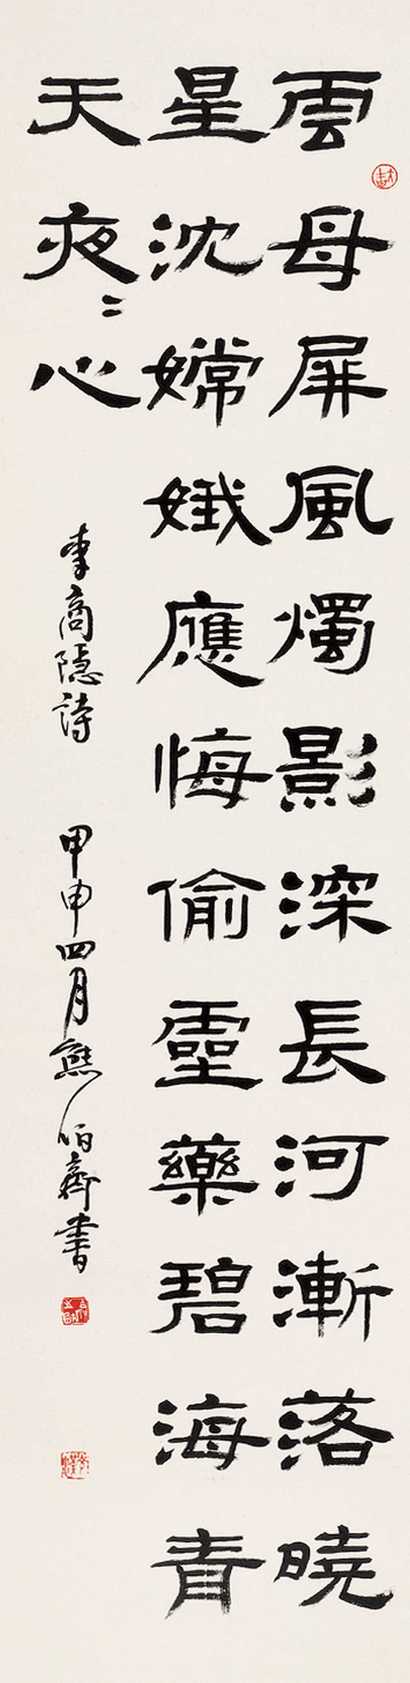 雲母屏風燭影深長河漸落曉
星沈嫦娥應悔偷靈藥碧海青
天夜〻心
李商隐詩 甲申四月熊伯齊書